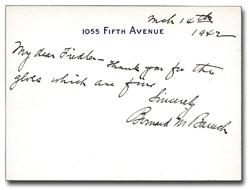 Mch 16th
1055 FIFTH AVENUE
1942
My dear Fiedler - Thank you for the
which are fine
Sincerely
Bernard M Baruch